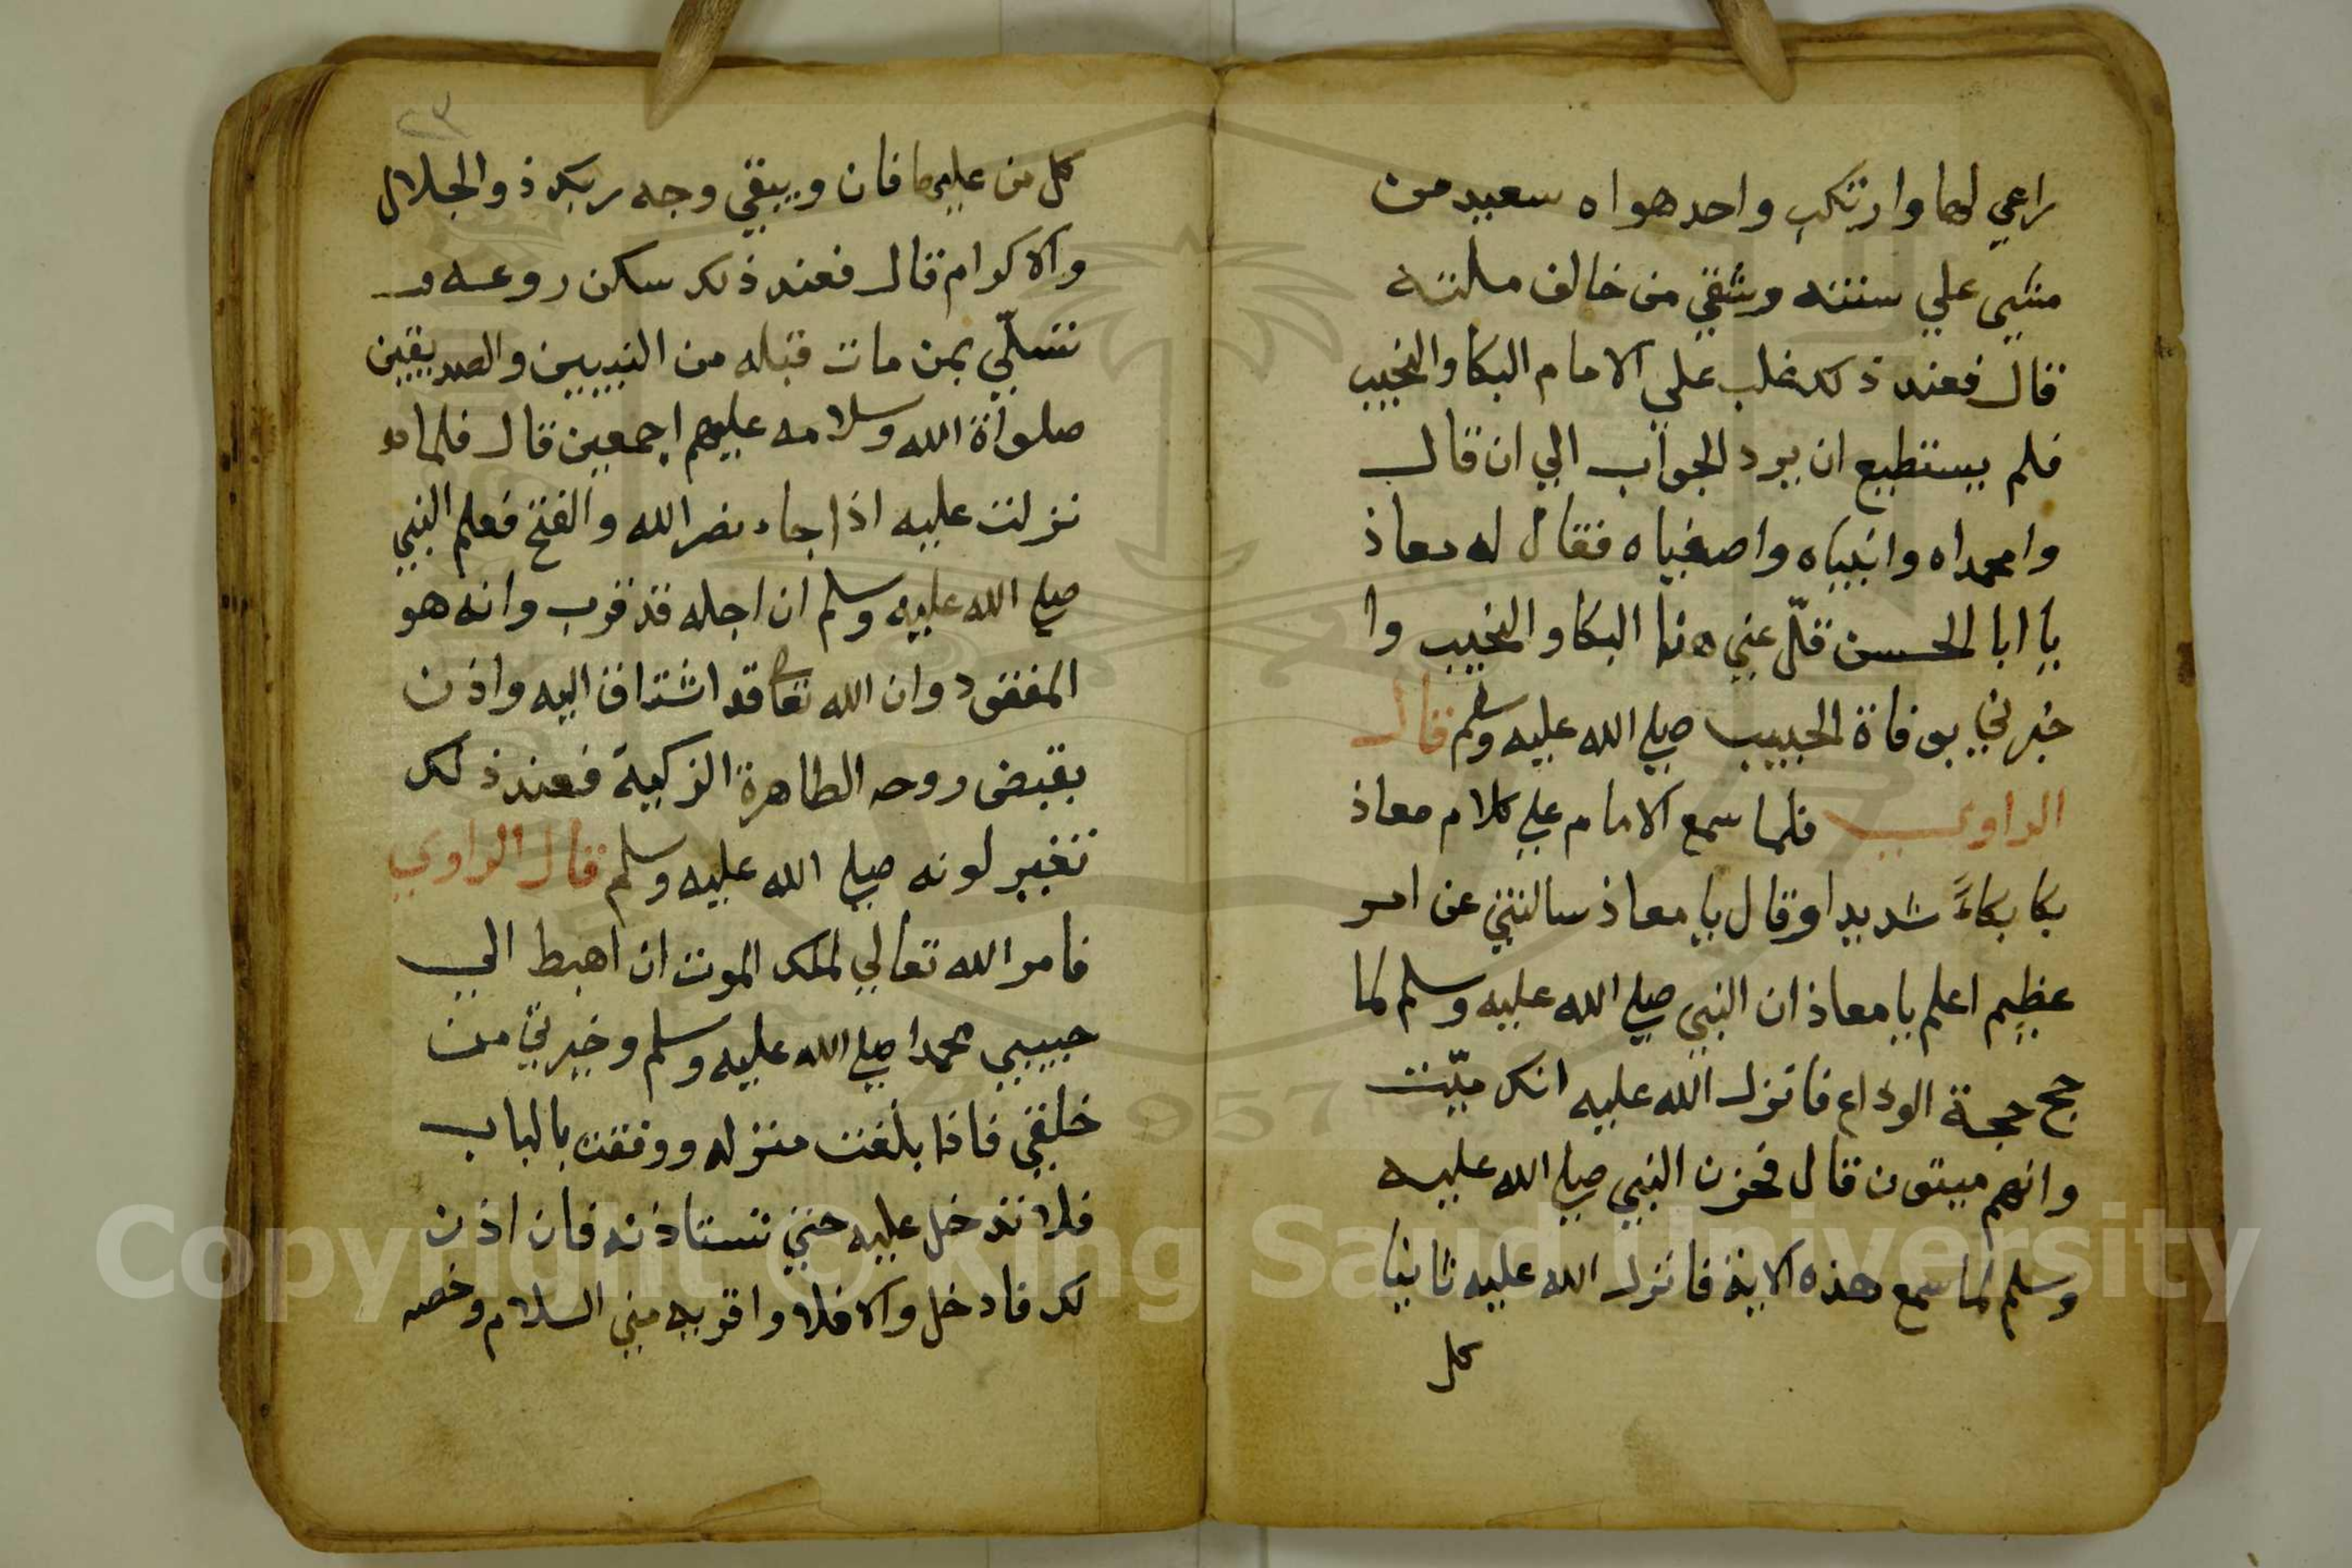 راعي لها وارتكب واحد هواه سعيد من
مشي علي سنته وشقي من خالف ملته
قال فعند ذلك غلب علي الامام البكا والنحيب
فلم يستطيع ان يرد الجواب الي ان قال
وامحمداه وانبياه واصفياه فقال له معاذ
يا ابا الحسن قلّ عني هذا البكا والنحيب وا
خبرني بوفاة الحبيب صلي الله عليه وسلم قال
الراوي فلما سمع الامام علي كلام معاذ
بكا بكاءً شديدا وقال يا معاذ سالتني عن امر
عظيم اعلم يا معاذ ان النبي صلي الله عليه وسلم لما
حج حجة الوداع فانزل الله عليه انك ميّت
وانهم ميتون قال فحزن النبي صلي الله عليه
وسلم لما سمع هذه الاية فانزل الله عليه ثانيا
كل
٢٣
كل من عليها فان ويبقي وجه ربك ذو الجلال
والاكرام قال فعند ذلك سكن روعه و
تسلّي بمن مات قبله من النبيين والصديقين
صلواة الله وسلامه عليهم اجمعين قال فلما
نزلت عليه اذا جاء نصر الله والفتح فعلم النبي
صلي الله عليه وسلم ان اجله قد قرب وانه هو
المفقود وان الله تعالى قد اشتاق اليه واذن
بقبض روحه الطاهرة الزكية فعند ذلك
تغير لونه صلي الله عليه وسلم قال الراوي
فامر الله تعالي لملك الموت ان اهبط الي
حبيبي محمدا صلي الله عليه وسلم وخيرتي من
خلقي فاذا بلغت منزله ووقفت بالباب
فلا تدخل عليه حتي تستاذنه فان اذن
لك فادخل والا فلا واقريه مني السلام وخصه
Copyright © King Saud University
1957